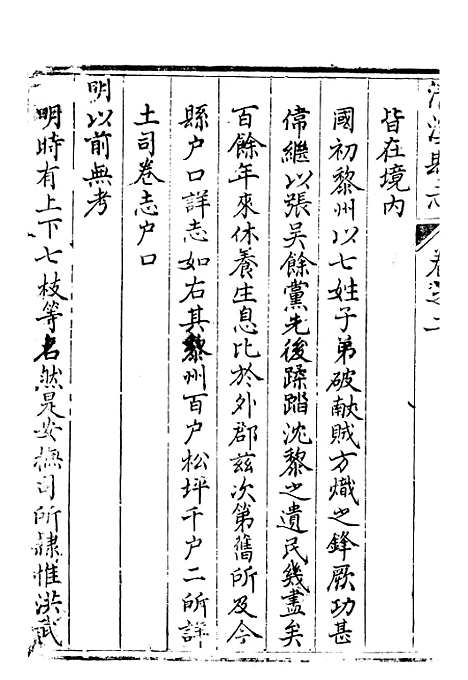 清溪縣志 卷之二
皆在境内
國初黎州以七姓子弟破献賊方熾之鋒厥功甚
偉繼以張吳餘黨先後蹂踏沈黎之遺民幾盡矣
百餘年來休養生息比於外郡茲次第舊所及今
縣户口詳志如右其黎州百户松坪千户二所詳
土司卷志户口
明以前無考
明時有上下七枝等名然是安撫司所隷惟洪武